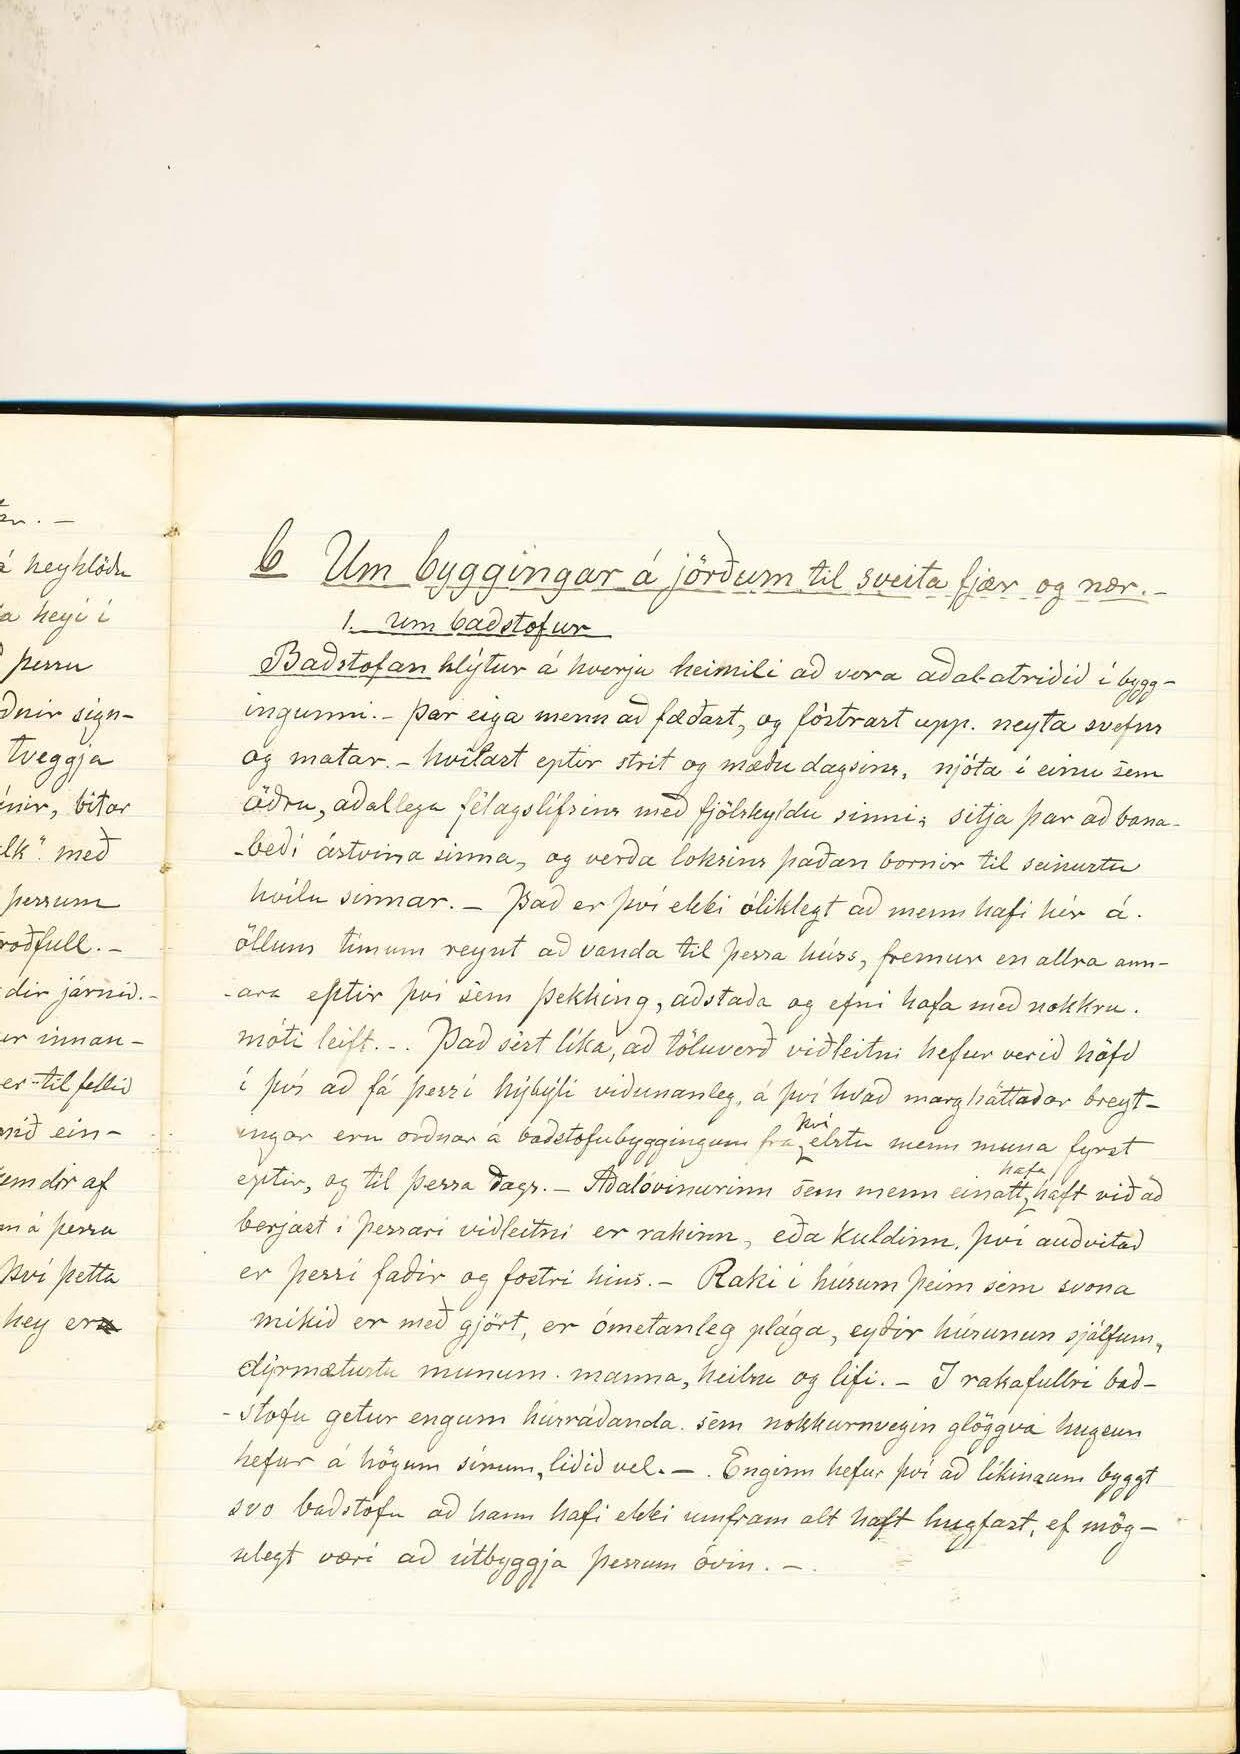 á heyhlöðu
a heyi í
þessu
ðnir sign-
tveggja
bitar
með
þessum
roðfull. -
dir járnið. -
er innan -
er - til fellið
ein -
emdir af
m á þessu
Því þetta
hey eru
C Um byggingar á jörðum til sveita fjær og nær. -
1. Um baðstofur
Baðstofan hlýtur á hverju heimili að vera aðal-atriðið í bygg-
ingunni. - Þar eiga menn að fæðast, og fóstrast upp. neyta svefns
og matar. - hvílast eptir strit og mæðu dagsins, njóta í einu sem
öðru, aðallega félagslífsins með fjölskyldu sinni; sitja þar að bana-
-beði ástvina sinna, og verða loksins þaðan bornir til seinustu
hvílu sinnar. - Það er því ekki ólíklegt að menn hafi hér á.
öllum tímum reynt að vanda til þessa húss, fremur en allra ann-
-ara eptir því sem þekking, aðstaða og efni hafa með nokkru.
móti leift. -. Það sést líka, að töluverð viðleitni hefur verið höfð
í því að fá þessi hýbýli viðunanleg, á því hvað marg háttaðar breyt-
ingar eru orðnar á baðstofubyggingum frá því elstu menn muna fyrst
eptir, og til þessa dags. - Aðalóvinurinn sem menn einatt hafa haft við að
berjast í þessari viðleitni er rakinn, eða kuldinn, því auðvitað
er þessi faðir og fostri hins. - Raki í húsum þeim sem svona
mikið er með gjört, er ómetanleg plága, eyðir húsunun sjálfum,
dýrmætustu munum. manna, heilsu og lífi. - I rakafullri bað-
-stofu getur engum húsráðanda. sem nokkurnvegin glöggva hugsun
hefur á högum sínum, liðið vel. -. Enginn hefur því að líkindum byggt
svo baðstofu að hann hafi ekki umfram alt haft hugfast, ef mög-
ulegt væri að útbyggja þessum óvin. -.